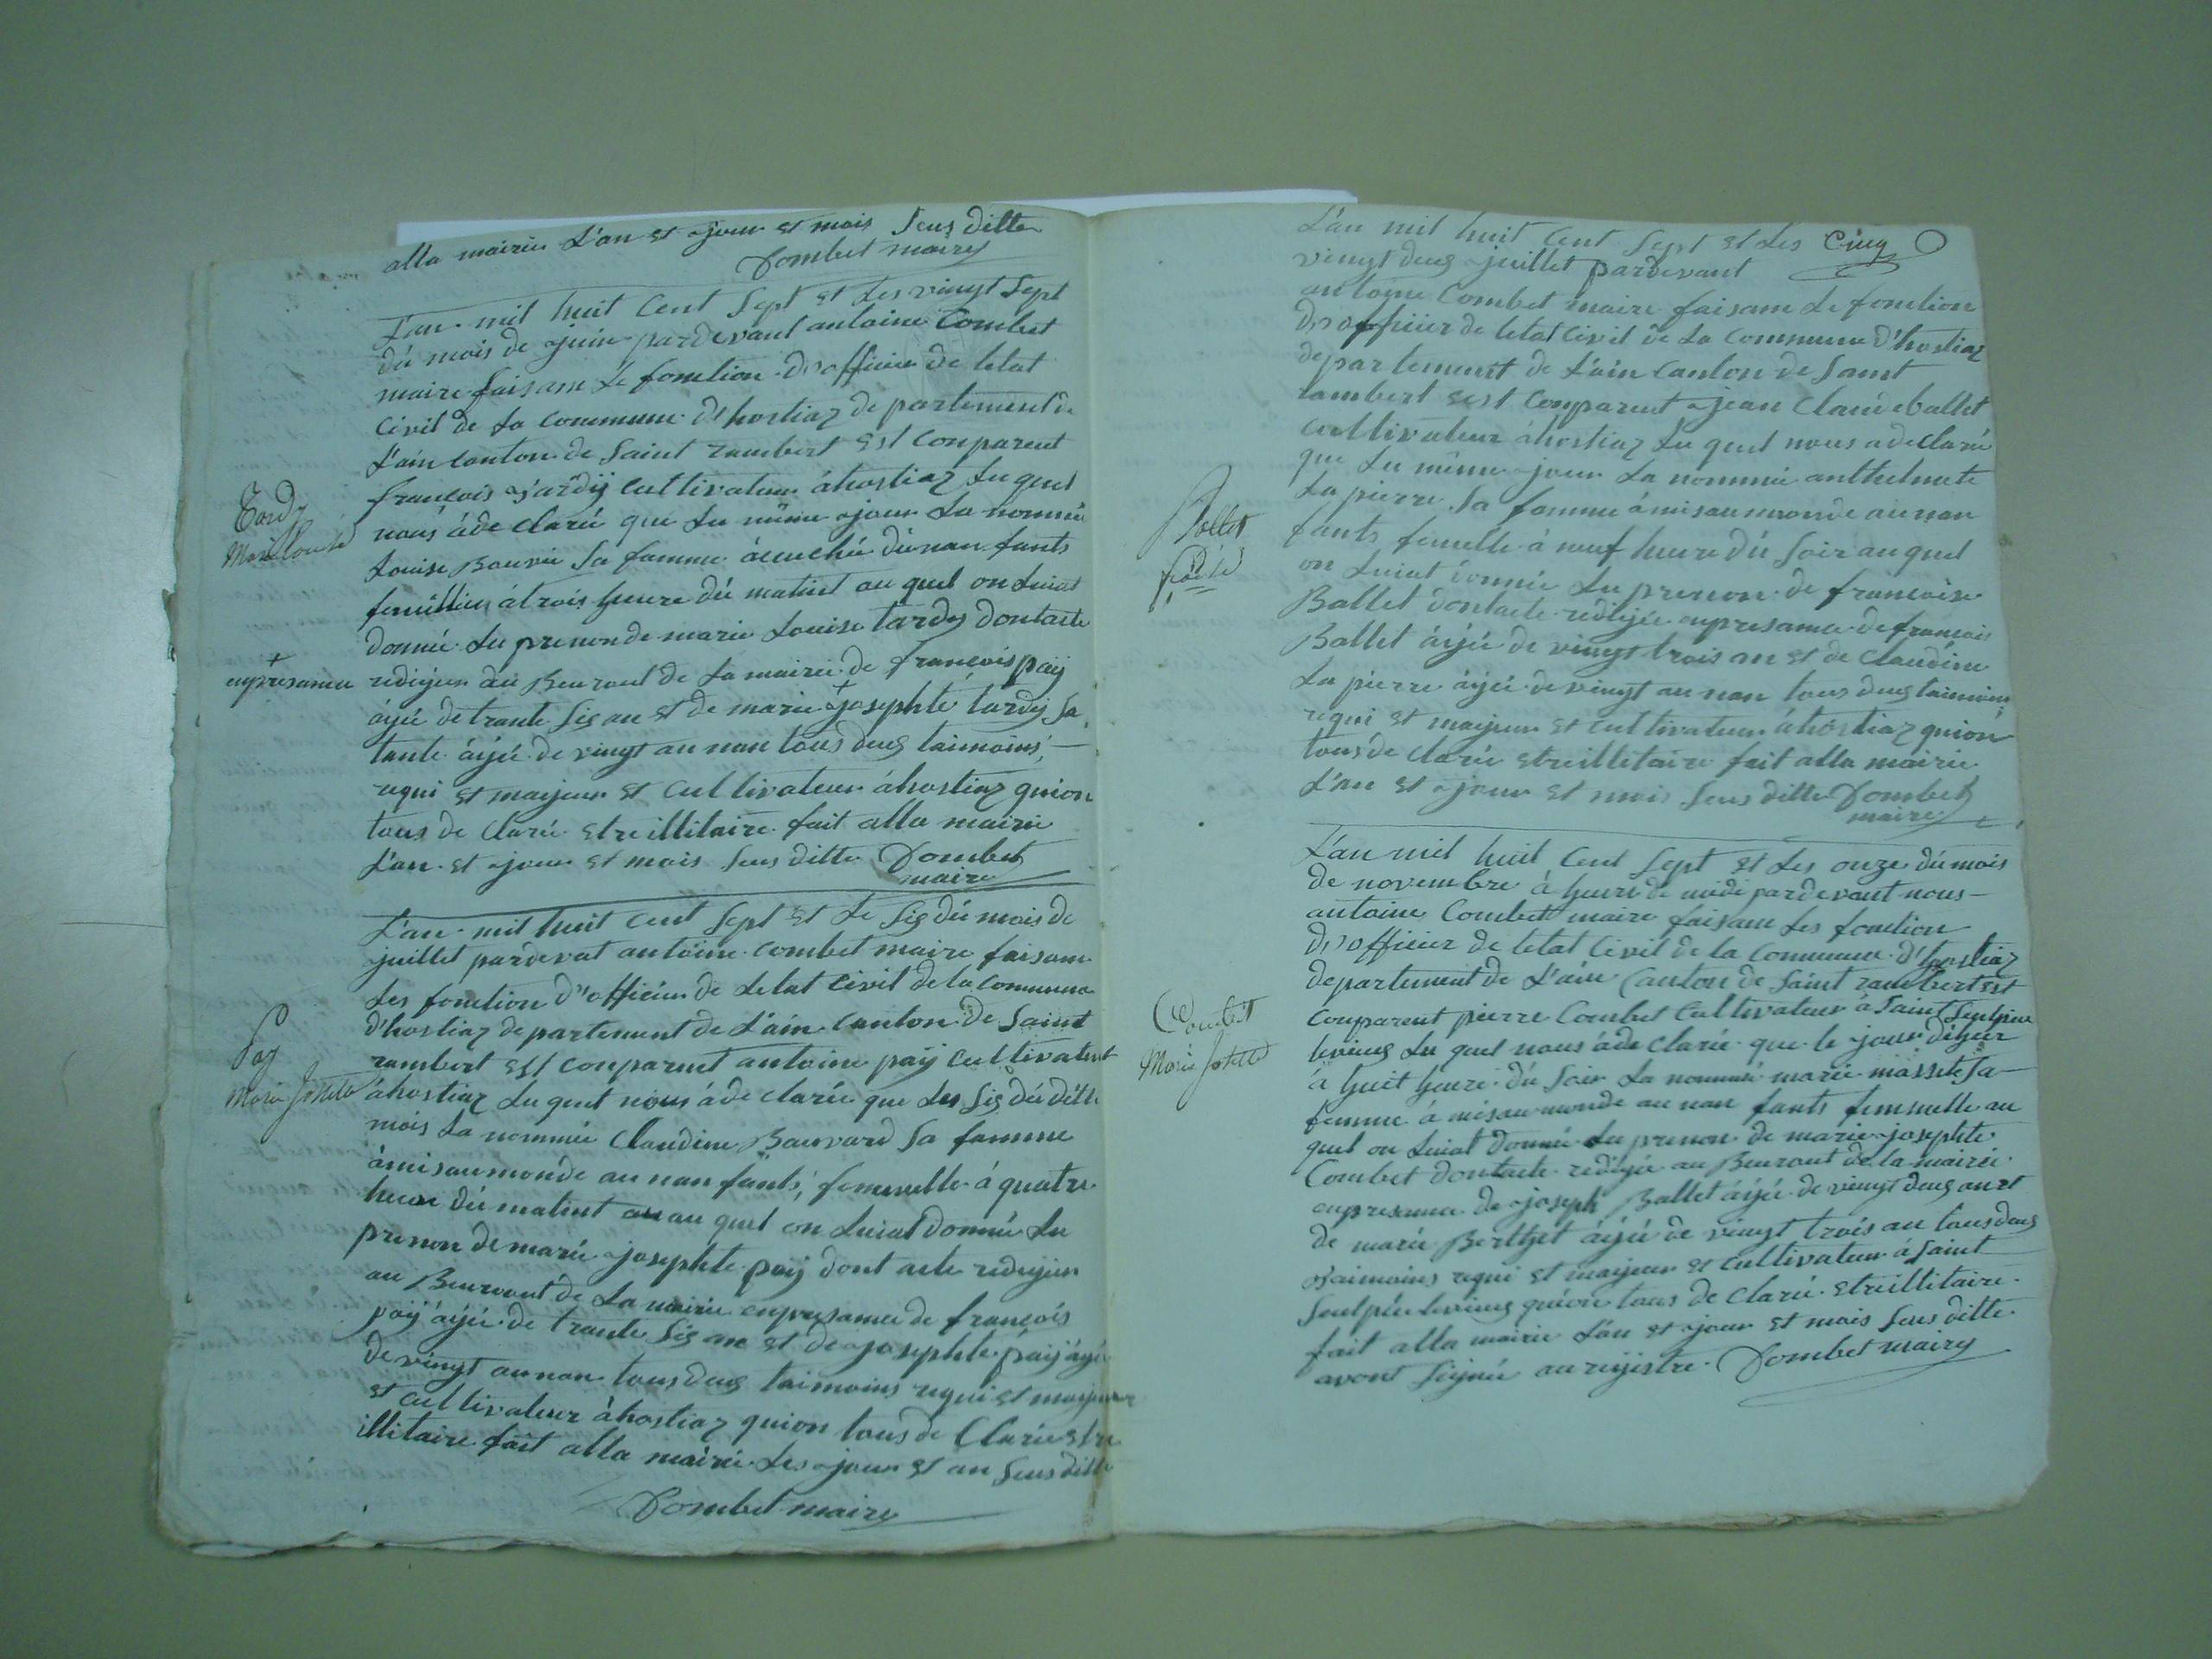 alla mairie L'an et jour et mois sus ditte
Combet maire
L'an mil huit Cent Sept et Les vingt Sept
dú mois de juin pardevant antoine Combet
maire faisam Le fonction d'officier de letat
Civil de La Commune d'hostiaz departement de
L'ain Canton de Saint rambert est Conparent
françois tardy Cultivateur áhostiaz Le quel
nous áde Claré que Le même jour La nommée
Louise Bauvie Sa famme acuchée dú nan fants
femillien átrois heure dú matint au quel on Luiat
donné Le prenonde marie Louise tardy dontacte
redigee au Beuraut de La mairie de françois paÿ
áyié detrante Sis an et de marie + josephte tardy Sa
tante áyié de vingt au nan tous deus taimoins
requi et majeur et Cultivateur áhostiaz quion
tous de Claré etreillitaire fait alla mairie
L'an et jour et mois Sus ditte Combet
maire
Tardy
Marie Louise
+
enpresance
L'an mil huit Cent Sept et Le Sis dú mois de
juillet pardevat antoine Combet maire faisam
Les fonction d'officier de Letat Civil de la Commune
d'hostiaz departement de L'ain Canton de Saint
rambert est Conparent antoine paÿ Cultivateur
áhostiaz Le quel nous áde Clarée que Les Sis dú ditte
mois La nommée Claudine Bauvard Sa famme
ámisaumonde au nan fants, femmelle á quatre
heure dú matint au au quel on Luiat donné Le
prenon de marie josephte paÿ dont acte redigee
au Beuraut de La mairie enpresance de françois
paÿ áyié de trante Sis an et de josephte paÿ áyié
de vingt au nan tous deus taimoins requi et majeur
et Cultivateur áhostiaz quion tous de Clarée etre
illitaire fait alla mairie Les jour et an Sus ditte
Combet maire
Pay
Marie Josette
L'an mil huit Cent Sept et Les Cinq
vingt deus juillet pardevant
antoine Combet maire faisam Le fonction
d'officier de letat Civil de La Commune d'hostiaz
departement de L'ain Canton de Saint
rambert est Conparent jean Claude ballet
Cultivateur áhostiaz Le quel nous a declaré
que Le même jour La nommée anthelmete
La pierre Sa famme á misau monde au nan
fants femelle á neuf heure dú Soir au quel
on Luiat donnée Le prenon de francoise
Ballet dontacte redigée enpresance de francois
Ballet áyié de vingt trois an et de Claudine
La pierre áyié de vingt au nan tous deus taimoins
requi et majeur et Cultivateur áhostiaz quion
tous de Clarée etreillitaire fait alla mairie
L'an et jour et mois Sus ditte Combet
maire
Ballet
L'an mil huit Cent Sept et Les onze dú mois
de novembre á heure de midi pardevant nous
antoine Combet maire faisam Les fonction
d'officier de letat Civil de la Commune d'hostiaz
departement de L'ain Canton de Saint rambert est
Conparent pierre Combet Cultivateur á Saint Seulpice
levieus Le quel nous áde Claré que le jour d'hier
á huit heure dú Soir La nommé marie massete Sa
femme á misau monde au nan fants femmelle au
quel on Luiat donné Le prenon de marie josephte
Combet dontacte redigée au Beuraut de la mairie
enpresance de joseph Ballet áyié de vingt deus an et
de marie Berthet áyié de vingt trois an tous deus
taimoins requi et majeur et Cultivateur á Saint
Seulpice levieus quion tous de Claré etreillitaire
fait alla mairie L'an et jour et mois Sus ditte
avont Signée au registre Combet maire
Combet
Marie Josette